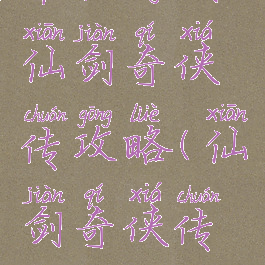 xiān jiàn qí xiá
仙剑奇侠
chuán gōng lüè xiān
传攻略(仙
jiàn qí xiá chuán
剑奇侠传